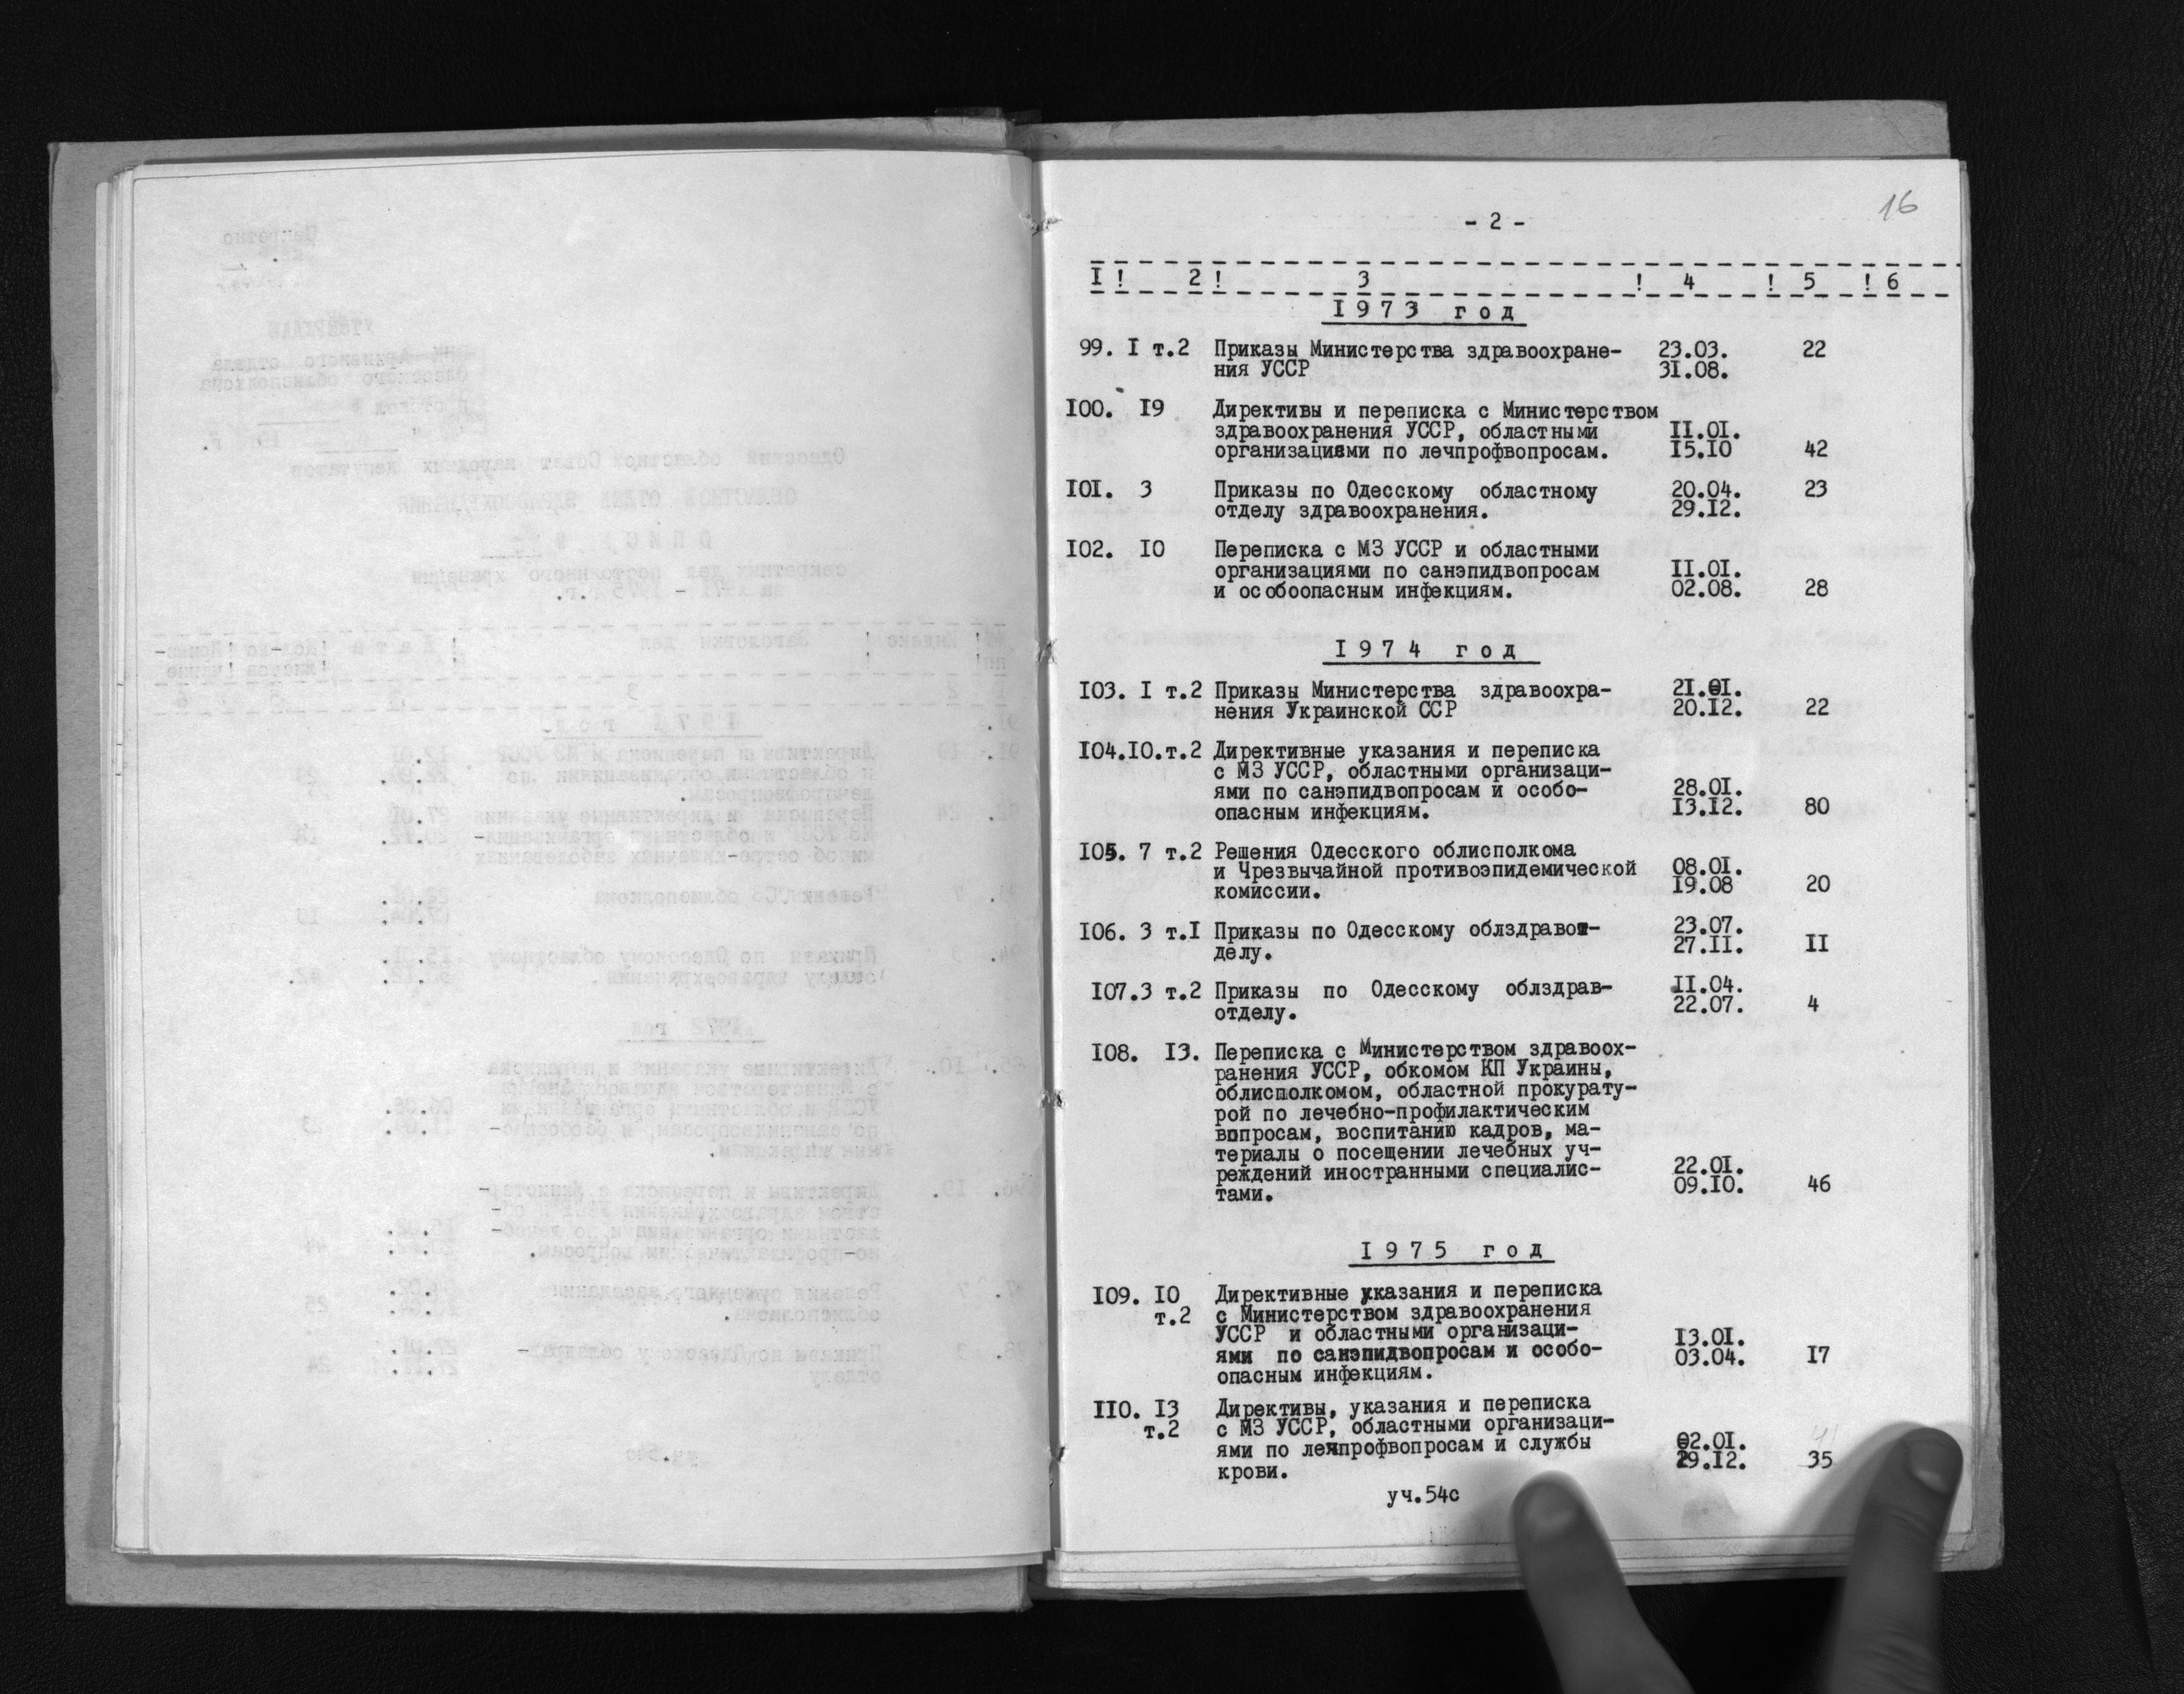 16
- 2 -
I ! 2 ! 3 ! 4 ! 5 ! 6
1973 год
99. I т.2 Приказы Министерства здравоохране- 23.03. 22
ния УССР 31.08.
100. 19 Директивы и переписка с Министерством
здравоохранения УССР, областными 11.01.
организациями по лечпрофвопросам. 15.10 42
101. 3 Приказы по Одесскому областному 20.04. 23
отделу здравоохранения. 29.12.
102. 10 Переписка с МЗ УССР и областными
организациями по санэпидвопросам 11.01.
и особоопасным инфекциям. 02.08. 28
1974 год
103. 1 т.2 Приказы Министерства здравоохра- 21.01.
нения Украинской ССР 20.12. 22
104.10.т.2 Директивные указания и переписка
с МЗ УССР, областными организаци-
ями по санэпидвопросам и особо- 28.01.
опасным инфекциям. 13.12. 80
105. 7 т.2 Решения Одесского облисполкома
и Чрезвычайной противоэпидемической 08.01.
комиссии. 19.08 20
106. 3 т.1 Приказы по Одесскому облздравот- 23.07.
делу. 27.11. 11
107.3 т.2 Приказы по Одесскому облздрав- 11.04.
отделу. 22.07. 4
108. 13. Переписка с Министерством здравоох-
ранения УССР, обкомом КП Украины,
облисполкомом, областной прокурату-
рой по лечебно-профилактическим
вопросам, воспитанию кадров, ма-
териалы о посещении лечебных уч-
реждений иностранными специалис- 22.01.
тами. 09.10. 46
1975 год
109. 10 Директивные указания и переписка
т.2 с Министерством здравоохранения
УССР и областными организаци-
ями по санэпидвопросам и особо- 13.01.
опасным инфекциям. 03.04. 17
110. 13 Директивы, указания и переписка
т.2 с МЗ УССР, областными организаци-
ями по лечпрофвопросам и службы 02.01.
крови. 29.12. 35
уч.54с